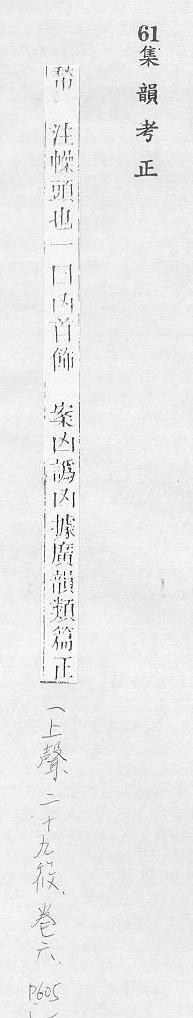 61集韻考正
注幧頭也一曰囟首飾 案凶譌囟據廣韻類篇正
（上聲、二十九筱、卷六、P605